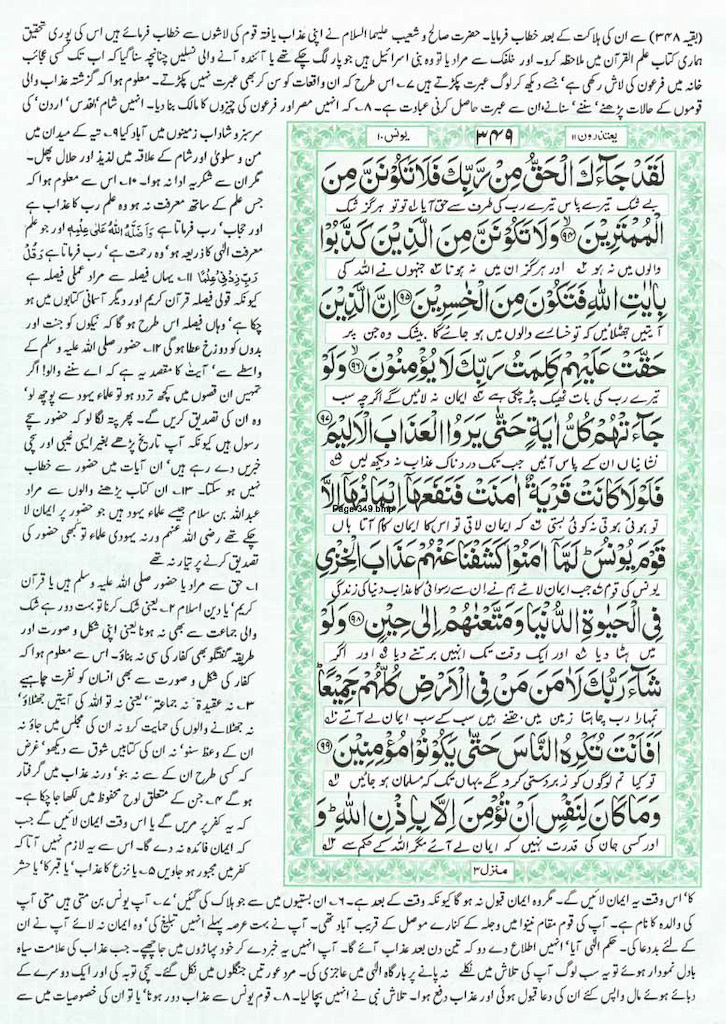 (بقیہ ۳۴۸) سے ان کی ہلاکت کے بعد خطاب فرمایا۔ حضرت صالح و شعیب علیہما السلام نے اپنی عذاب یافتہ قوم کی لاشوں سے خطاب فرمائے ہیں اس کی پوری تحقیق
ہماری کتاب علم القرآن میں ملاحظہ کرو۔ اور خلفک سے مراد یا تو وہ بنی اسرائیل ہیں جو پار لگ چکے تھے یا آئندہ آنے والی نسلیں چنانچہ سنا گیا کہ اب تک کسی عجائب
خانہ میں فرعون کی لاش رکھی ہے، جسے دیکھ کر لوگ عبرت پکڑتے ہیں ۷۔ اس طرح کہ ان واقعات کو سن کر بھی عبرت نہیں پکڑتے۔ معلوم ہوا کہ گزشتہ عذاب والی
قوموں کے حالات پڑھنے، سننے، سنانے، ان سے عبرت حاصل کرنی عبادت ہے۔ ۸۔ کہ انہیں مصر اور فرعون کی چیزوں کا مالک بنا دیا۔ انہیں شام، قدس، اردن، کی
یونس ۱۰ ۳۴۹ یعتذرون ۱۱
لَقَدْ جَآءَكَ الْحَقُّ مِنْ رَّبِّكَ فَلَا تَكُوْنَنَّ مِنَ
بے شک تیرے پاس تیرے رب کی طرف سے حق آیا تو تو ہرگز شک
الْمُمْتَرِيْنَ ﴿۹۴﴾ وَلَا تَكُوْنَنَّ مِنَ الَّذِيْنَ كَذَّبُوْا
والوں میں نہ ہو اور ہرگز ان میں نہ ہونا جنہوں نے اللہ کی
بِاٰيٰتِ اللّٰهِ فَتَكُوْنَ مِنَ الْخٰسِرِيْنَ ﴿۹۵﴾ اِنَّ الَّذِيْنَ
آیتیں جھٹلائیں کہ تو خسارے والوں میں ہو جائے گا بیشک وہ جن پر
حَقَّتْ عَلَيْهِمْ كَلِمَتُ رَبِّكَ لَا يُؤْمِنُوْنَ ﴿۹۶﴾ وَلَوْ
تیرے رب کی بات ٹھیک پڑ چکی ہے ایمان نہ لائیں گے اگرچہ سب
جَآءَتْهُمْ كُلُّ اٰيَةٍ حَتّٰى يَرَوُا الْعَذَابَ الْاَلِيْمَ ﴿۹۷﴾
نشانیاں ان کے پاس آئیں جب تک دردناک عذاب نہ دیکھ لیں
فَلَوْلَا كَانَتْ قَرْيَةٌ اٰمَنَتْ فَنَفَعَهَاۤ اِيْمَانُهَاۤ اِلَّا
Page-349.bmp
تو ہوئی ہوتی نہ کوئی بستی کہ ایمان لاتی تو اس کا ایمان کام آتا ہاں
قَوْمَ يُوْنُسَ ؕ لَمَّاۤ اٰمَنُوْا كَشَفْنَا عَنْهُمْ عَذَابَ الْخِزْىِ
یونس کی قوم جب ایمان لائے ہم نے ان سے رسوائی کا عذاب دنیا کی زندگی
فِى الْحَيٰوةِ الدُّنْيَا وَمَتَّعْنٰهُمْ اِلٰى حِيْنٍ ﴿۹۸﴾ وَلَوْ
میں ہٹا دیا اور ایک وقت تک انہیں برتنے دیا اور اگر
شَآءَ رَبُّكَ لَاٰمَنَ مَنْ فِى الْاَرْضِ كُلُّهُمْ جَمِيْعًا ؕ
تمہارا رب چاہتا زمین میں جتنے ہیں سب کے سب ایمان لے آتے
اَفَاَنْتَ تُكْرِهُ النَّاسَ حَتّٰى يَكُوْنُوْا مُؤْمِنِيْنَ ﴿۹۹﴾
تو کیا تم لوگوں کو زبردستی کرو گے یہاں تک کہ مسلمان ہو جائیں
وَمَا كَانَ لِنَفْسٍ اَنْ تُؤْمِنَ اِلَّا بِاِذْنِ اللّٰهِ ؕ وَ
اور کسی جان کی قدرت نہیں کہ ایمان لے آئے مگر اللہ کے حکم سے
منزل ۳
سرسبز و شاداب زمینوں میں آباد کیا ۹۔ تیہ کے میدان میں
من و سلویٰ اور شام کے علاقہ میں لذیذ اور حلال پھل۔
مگر ان سے شکریہ ادا نہ ہوا۔ ۱۰۔ اس سے معلوم ہوا کہ
جس علم کے ساتھ معرفت نہ ہو وہ علم رب کا عذاب ہے
اور حجاب، رب فرماتا ہے وَاَضَلَّهُ اللّٰهُ عَلٰى عِلْمٍ اور جو علم
معرفت الٰہی کا ذریعہ ہو، وہ رحمت ہے، رب فرماتا ہے وَقُلْ
رَّبِّ زِدْنِىْ عِلْمًا ۱۱۔ یہاں فیصلہ سے مراد عملی فیصلہ ہے
کیونکہ قولی فیصلہ قرآن کریم اور دیگر آسمانی کتابوں میں ہو
چکا ہے، وہاں فیصلہ اس طرح ہو گا کہ نیکوں کو جنت اور
بدوں کو دوزخ عطا ہو گی ۱۲۔ حضور صلی اللہ علیہ وسلم کے
واسطے سے، آیت کا مقصد یہ ہے کہ اے سننے والو! اگر
تمہیں ان قصوں میں کچھ تردد ہو تو علماء یہود سے پوچھ لو،
وہ ان کی تصدیق کریں گے۔ پھر پتہ لگا لو کہ حضور سچے
رسول ہیں کیونکہ آپ تاریخ پڑھے بغیر ایسی غیبی اور سچی
خبریں دے رہے ہیں، ان آیات میں حضور سے خطاب
نہیں ہو سکتا۔ ۱۳۔ ان کتاب پڑھنے والوں سے مراد
عبداللہ بن سلام جیسے علماء یہود ہیں جو حضور پر ایمان لا
چکے تھے رضی اللہ عنہم ورنہ یہودی علماء تو کبھی حضور کی
تصدیق کرنے پر تیار نہ تھے
۱۔ حق سے مراد یا حضور صلی اللہ علیہ وسلم ہیں یا قرآن
کریم، یا دین اسلام ۲۔ یعنی شک کرنا تو بہت دور ہے شک
والی جماعت سے بھی نہ ہونا یعنی اپنی شکل و صورت اور
طریقہ گفتگو بھی کفار کی سی نہ بناؤ۔ اس سے معلوم ہوا کہ
کفار کی شکل و صورت سے بھی انسان کو نفرت چاہیے
۳۔ نہ عقیدۃً نہ جماعۃً، یعنی نہ تو اللہ کی آیتیں جھٹلاؤ،
نہ جھٹلانے والوں کی حمایت کرو نہ ان کی مجلس میں جاؤ نہ
ان کے وعظ سنو، نہ ان کی کتابیں شوق سے دیکھو، غرض
کہ کسی طرح ان کے سے نہ بنو، ورنہ عذاب میں گرفتار
ہو گے ۴۔ جن کے متعلق لوح محفوظ میں لکھا جا چکا ہے۔
کہ یہ کفر پر مریں گے یا اس وقت ایمان لائیں گے جب
کہ ایمان فائدہ نہ دے گا۔ اس سے یہ لازم نہیں آتا کہ
کفر میں مجبور ہو جاویں ۵۔ یا نزع کا عذاب، یا قبر کا، یا حشر
کا، اس وقت یہ ایمان لائیں گے۔ مگر وہ ایمان قبول نہ ہو گا کیونکہ وقت کے بعد ہے۔ ۶۔ ان بستیوں میں سے جو ہلاک کی گئیں، ۷۔ آپ یونس بن متی ہیں متی آپ
کی والدہ کا نام ہے۔ آپ کی قوم مقام نینوا میں دجلہ کے کنارے موصل کے قریب آباد تھی۔ آپ نے بہت عرصہ پہلے انہیں تبلیغ کی، وہ ایمان نہ لائے آپ نے ان
کے لئے بددعا کی۔ حکم الٰہی آیا، انہیں اطلاع دے دو کہ تین دن بعد عذاب آئے گا۔ آپ انہیں یہ خبر دے کر خود پہاڑوں میں جا چھپے۔ جب عذاب کی علامت سیاہ
بادل نمودار ہوئے تو یہ سب لوگ آپ کی تلاش میں نکلے نہ پانے پر بارگاہ الٰہی میں عاجزی کی۔ مرد عورتیں جنگلوں میں نکل گئے۔ سچی توبہ کی اور ایک دوسرے کے
دبائے ہوئے مال واپس کئے ان کی دعا قبول ہوئی اور عذاب دفع ہوا۔ تلاش نبی نے انہیں بچا لیا۔ ۸۔ قوم یونس سے عذاب دور ہونا، یا تو ان کی خصوصیات میں سے